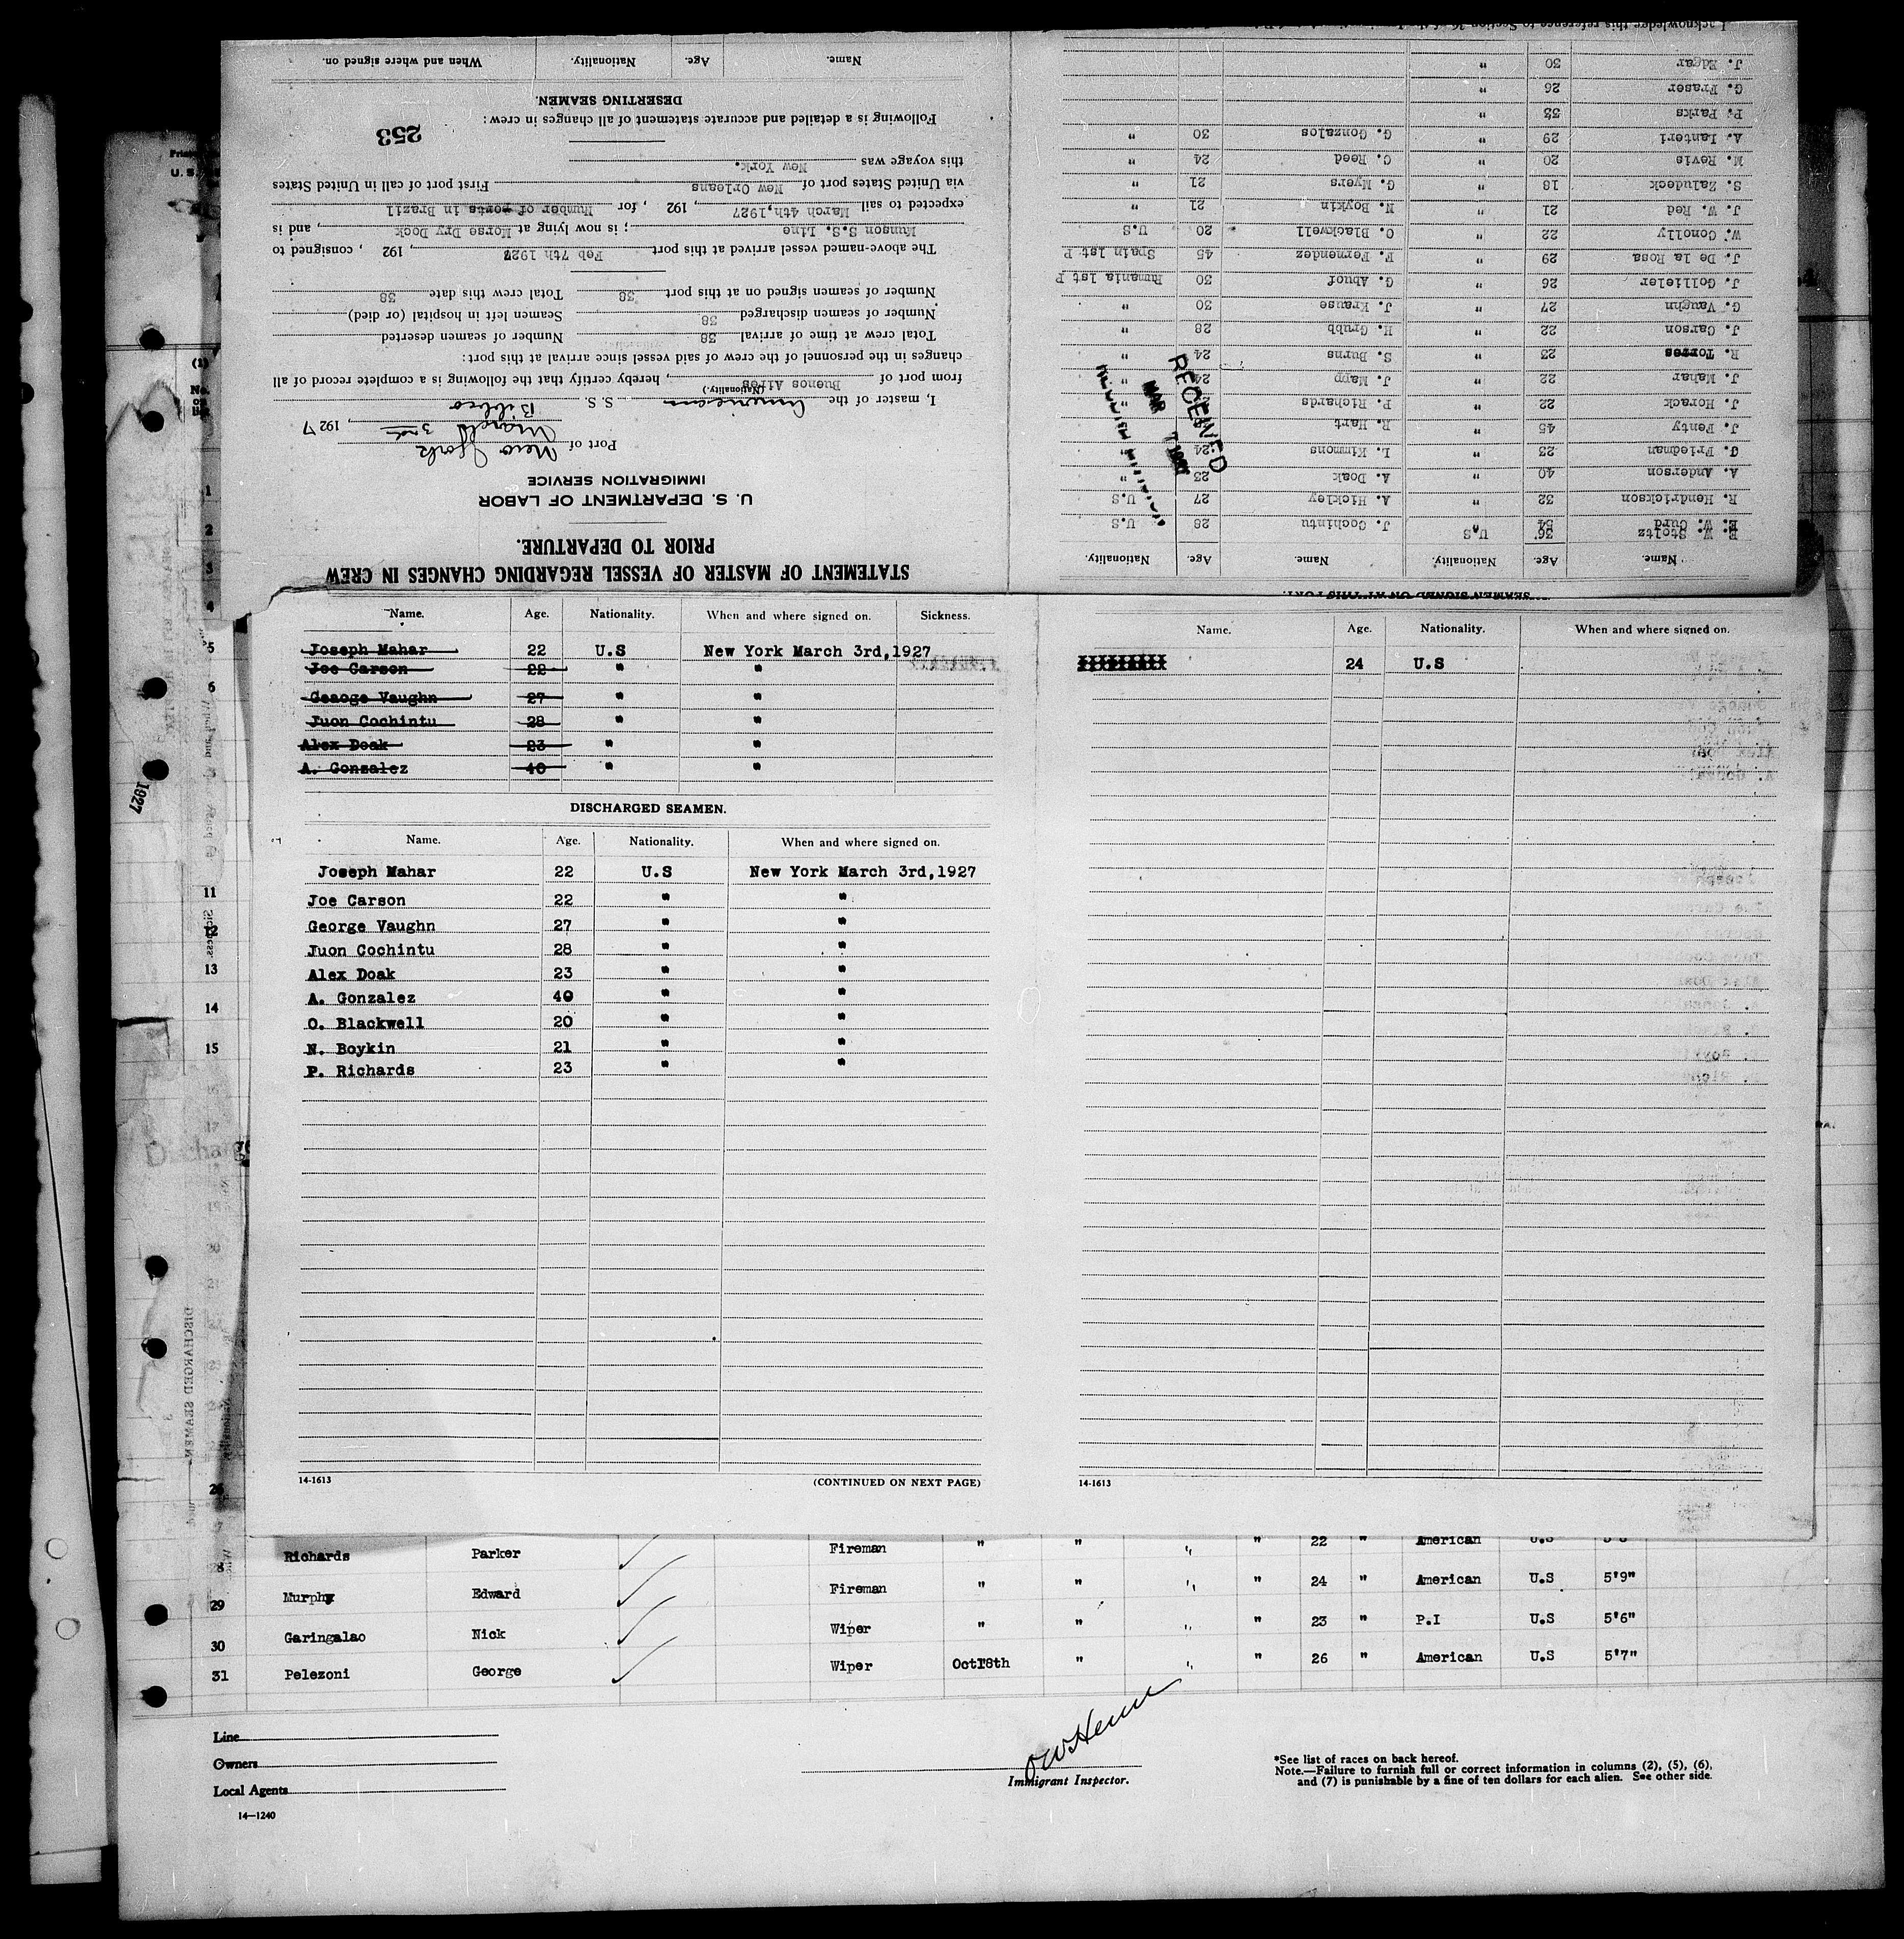 STATEMENT OF MASTER OF VESSEL REGARDING CHANGES IN CREW
PRIOR TO DEPARTURE.
U. S. DEPARTMENT OF LABOR
IMMIGRATION SERVICE
Port of New York
March 3rd, 1927
I, master of the American S. S. Bilbco
(Nationality.)
from port of Buenos Aires, hereby certify that the following is a complete record of all
changes in the personnel of the crew of said vessel since arrival at this port:
Total crew at time of arrival 38 Number of seamen deserted
Number of seamen discharged 38 Seamen left in hospital (or died)
Number of seamen signed on at this port 38 Total crew this date 38
The above-named vessel arrived at this port Feb 7th 1927, 192 , consigned to
Munson S.S. Line ; is now lying at Morse Dry Dock, and is
expected to sail March 4th,1927, 192 , for Number of ports in Brazil
via United States port of New Orleans First port of call in United States
this voyage was New York.
253
Following is a detailed and accurate statement of all changes in crew:
DESERTING SEAMEN.
Name. Age. Nationality. When and where signed on.
SEAMEN SIGNED ON AT THIS PORT.
Name. Age. Nationality. Name. Age. Nationality.
E. W. Stoltz 36 U.S J. Cochintu 28 U.S
E. W. Curd 54 "
R. Hendrickson 32 " A. Hickley 27 U.S
A. Anderson 40 " A. Doak 23 "
J. Friedman 23 " L. Kimmons 24 "
J. Fenty 45 " R. Hart
J. Horack 22 " P. Richards "
J. Mahar 22 " J. Mapp 24 "
R. Torres 23 " S. Burns 24 "
J. Carson 22 " H. Grubb 28 "
G. Vaughn 27 " J. Krause 30 "
J. Gollieler 26 " G. Abnof 30 Rumania 1st P
J. De la Rosa 29 " F. Fernendez 45 Spain 1st P
W. Conolly 22 " O. Blackwell 20 U.S
J. W. Red 21 " N. Boykin 21 "
S. Zaludeck 18 " G. Myers 21 "
M. Revis 20 " C. Reed 24 "
A. Lanteri 29 " G. Gonzalos 30 "
P. Parks 33 "
G. Fraser 26 "
J. Edgar 30 "
RECEIVED
MAR 7 1927
Name. Age. Nationality. When and where signed on. Sickness.
Joseph Mahar 22 U.S New York March 3rd,1927
Joe Carson 22 " "
Geaoge Vaughn 27 " "
Juon Cochintu 28 " "
Alex Doak 23 " "
A. Gonzalez 40 " "
DISCHARGED SEAMEN.
Name. Age. Nationality. When and where signed on.
Joseph Mahar 22 U.S New York March 3rd,1927
Joe Carson 22 " "
George Vaughn 27 " "
Juon Cochintu 28 " "
Alex Doak 23 " "
A. Gonzalez 40 " "
O. Blackwell 20 " "
N. Boykin 21 " "
P. Richards 23 " "
14-1613 (CONTINUED ON NEXT PAGE)
Name. Age. Nationality. When and where signed on.
24 U.S
14-1613
1927
1
2
3
4
5
6
11
12
13
14
15
26
28 Richards Parker Fireman " " " " 22 " American U.S
29 Murphy Edward Fireman " " " " 24 " American U.S 5'9"
30 Garingalao Nick Wiper " " " " 23 " P.I U.S 5'6"
31 Pelezoni George Wiper Oct18th " " " 26 " American U.S 5'7"
Line
Owners
Local Agents
14—1240
Immigrant Inspector.
*See list of races on back hereof.
Note.—Failure to furnish full or correct information in columns (2), (5), (6),
and (7) is punishable by a fine of ten dollars for each alien. See other side.